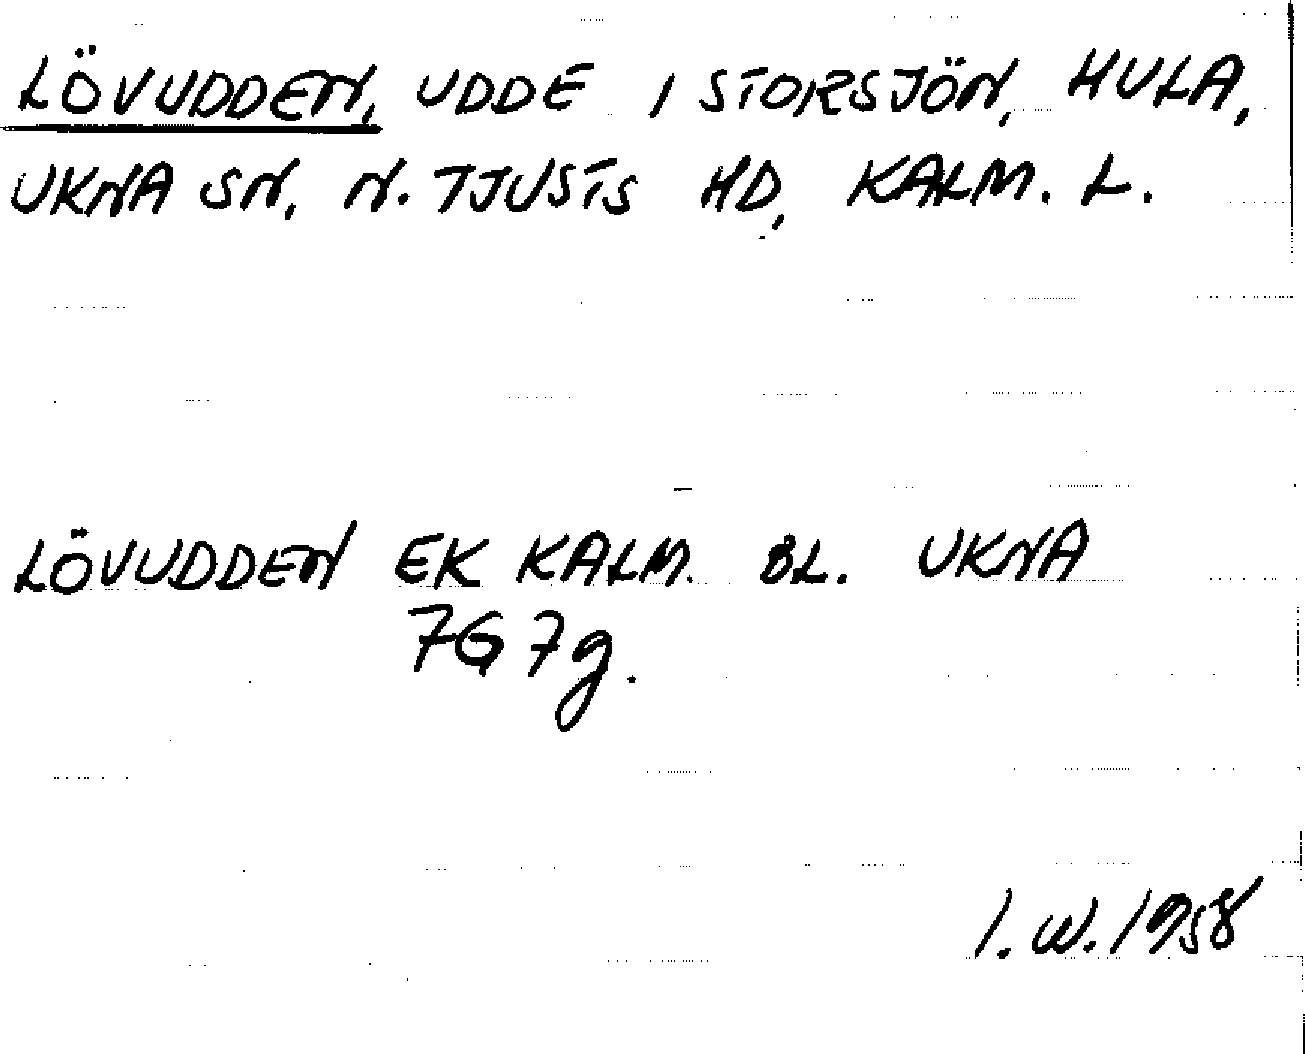 LÖVUDDEN, UDDE I STORSJÖN, HULA,
UKNA SN, N. TJUSTS HD, KALM. L.
LÖVUDDEN EK KALM. BL. UKNA
7G 7g.
I. W. 1958